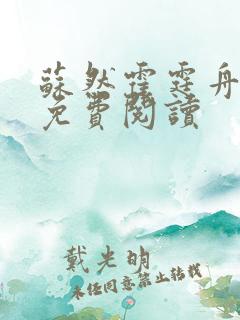 蘇然霍霆舟
免費閱讀
戴光明
未經同意禁止轉載